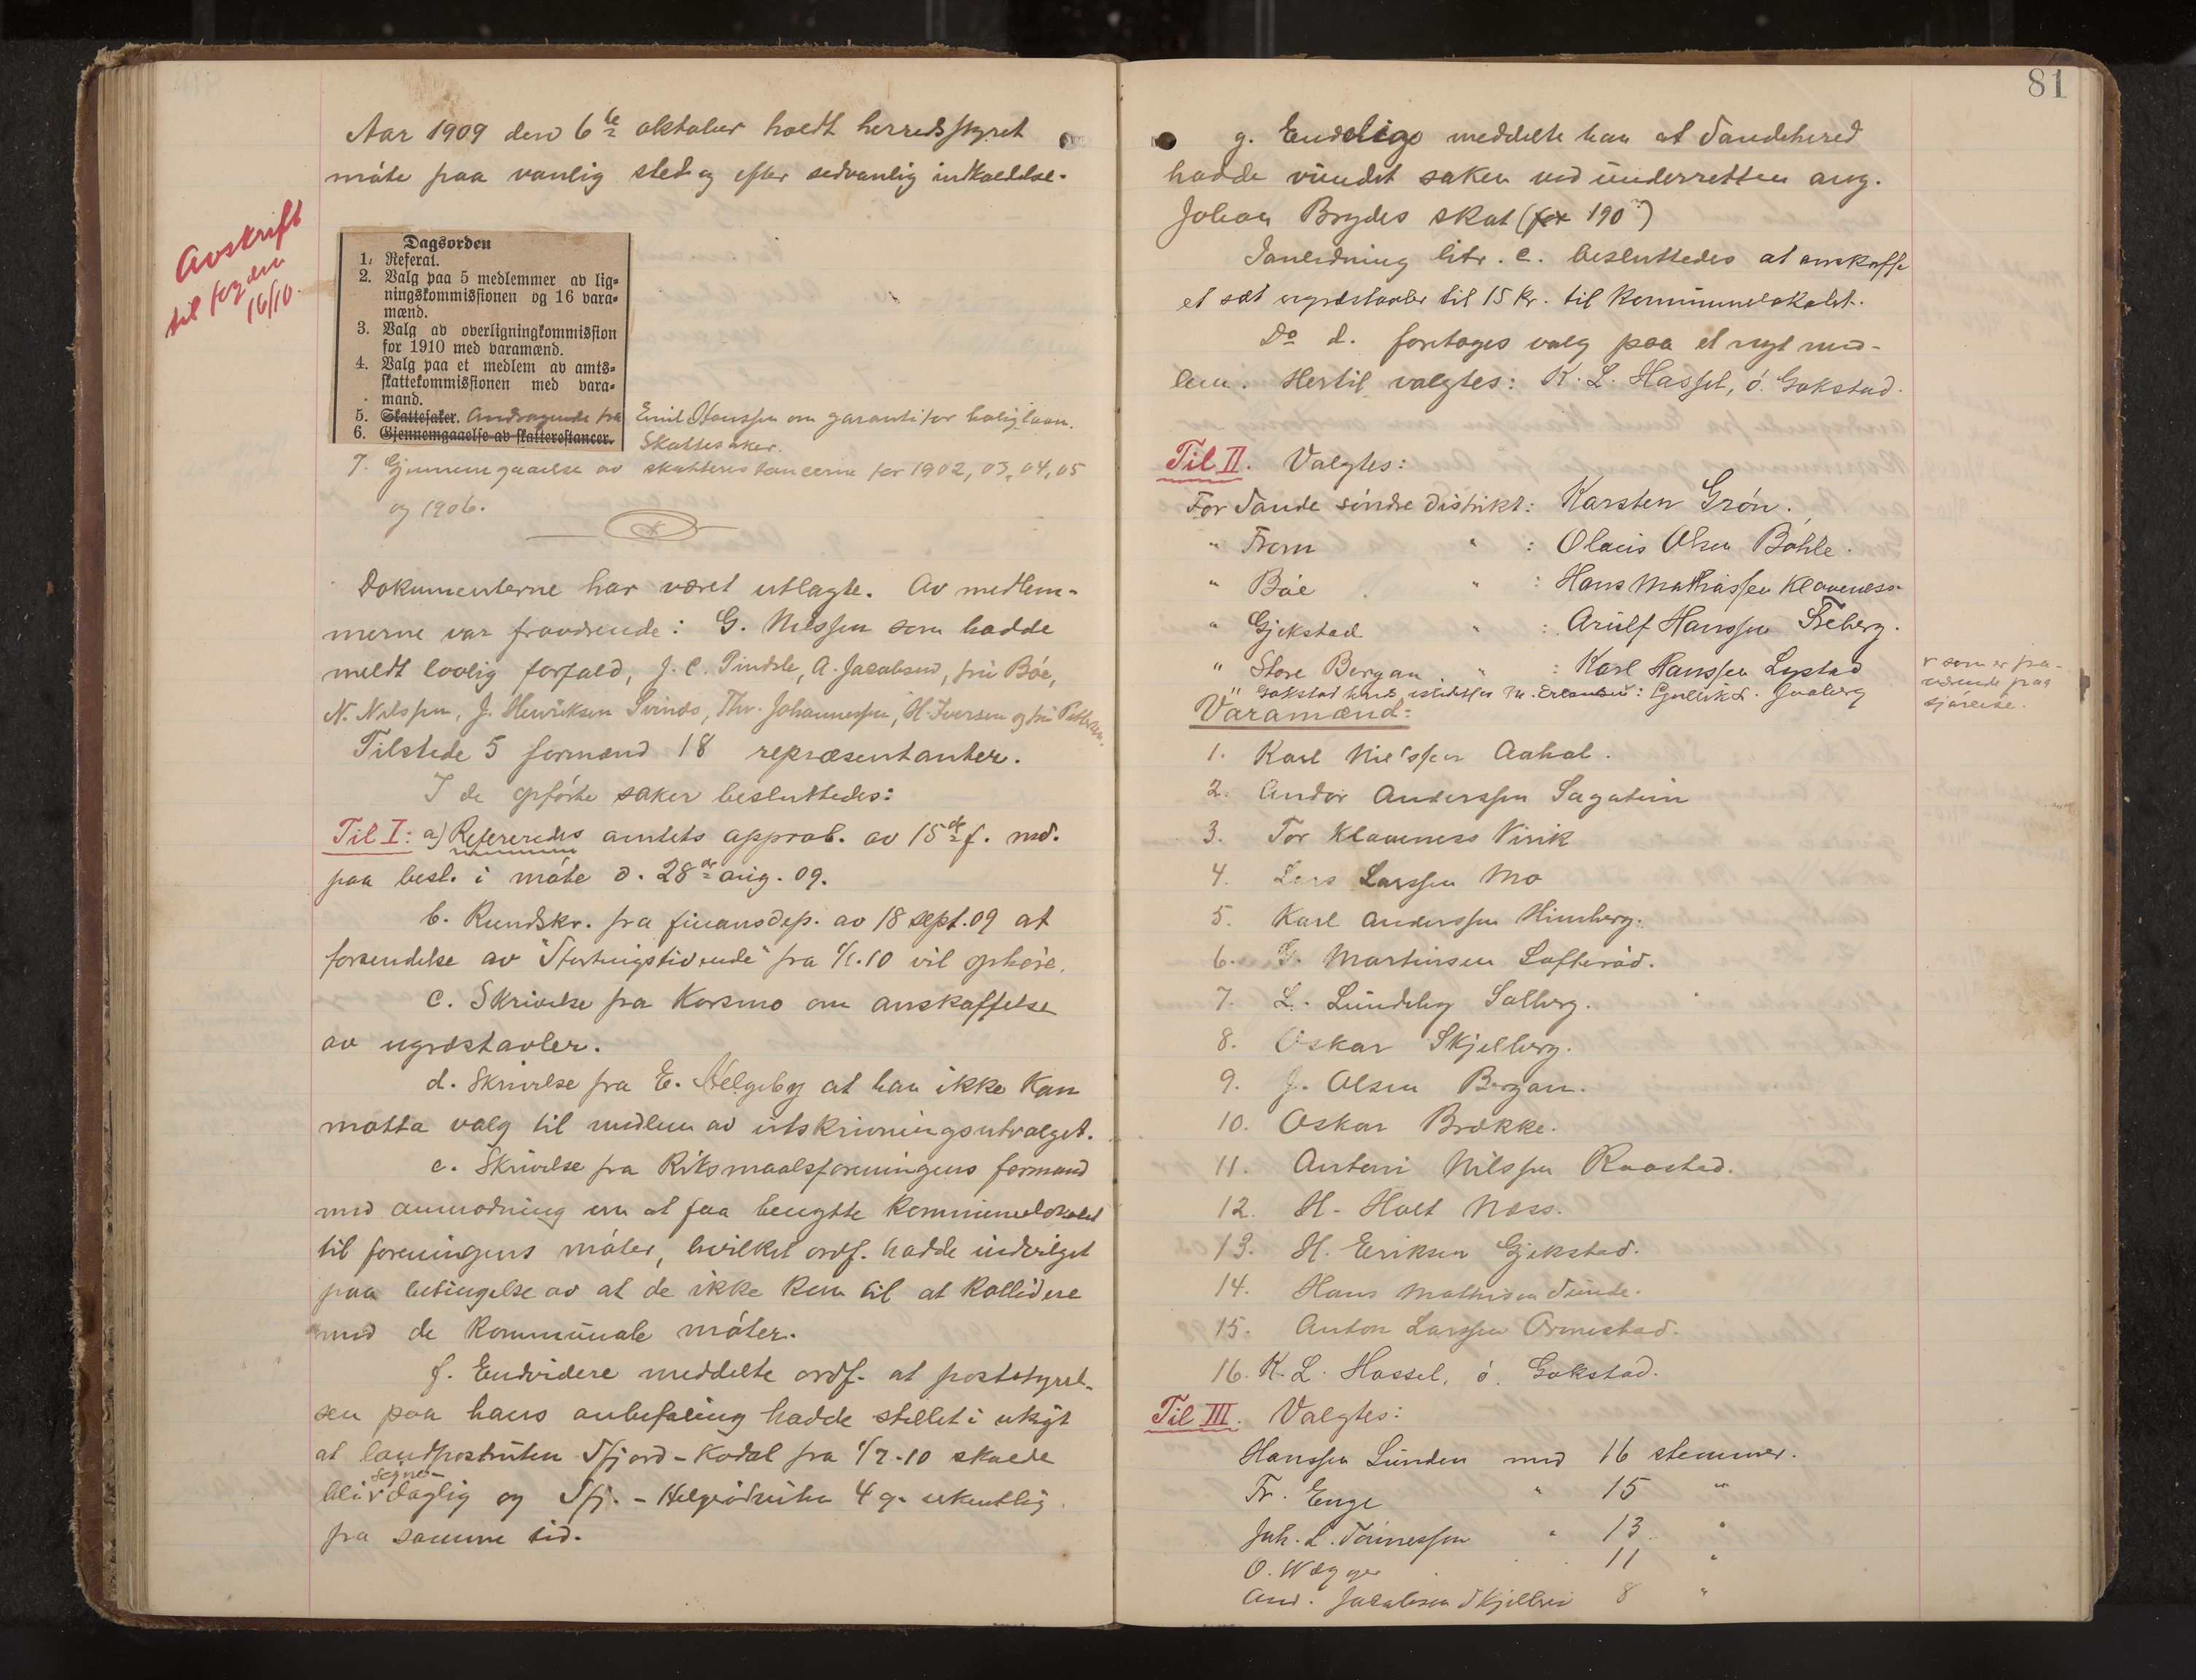 Aar 1909 den 6te oktober holdt herredsstyret
møte paa vanlig sted og efter sedvanlig indkaldelse.
Avskrift
til fogden
16/10.
Dagsorden
1. Referat.
2. Valg paa 5 medlemmer av lig-
ningskommissionen og 16 vara-
mænd.
3. Valg av overligningkommission
for 1910 med varamænd.
4. Valg paa et medlem av amts-
skattekommissionen med vara-
mand.
5. Skattesaker. Andragende fra Emil Hanssen om garanti for boliglaan.
6. Gjennemgaaelse av skatterestancer. Skattesaker.
7. Gjennemgaaelse av skatterestancerne for 1902, 03, 04, 05
og 1906.
Dokumenterne har været utlagte. Av medlem-
merne var fraværende: G. Nilssen som hadde
meldt lovlig forfald, J. C. Pindsle, A. Jacobsen, fru Bøe,
N. Nilssen, J. Henriksen Svinds, Thv. Johannessen, H. Iversen og fru
Tilstede 5 formænd 18 repræsentanter.
I de opførte saker besluttedes:
Til I: a) Refereredes amtets approb. av 15de f. md.
paa besl. i møte d. 28de aug. 09.
b. Rundskr. fra finansdep. av 18 sept. 09 at
forsendelse av "Stortingstidende" fra 1/1.10 vil ophøre.
c. Skrivelse fra Korsmo om anskaffelse
av ugræstavler.
d. Skrivelse fra E. Helgeby at han ikke kan
motta valg til medlem av utskrivningsutvalget.
e. Skrivelse fra Riksmaalsforeningens formand
med anmodning om at faa benytte kommunelokalet
til foreningens møter, hvilket ordf. hadde indvilget
paa betingelse av at de ikke kom til at kollidere
med de kommunale møter.
f. Endvidere meddelte ordf. at poststyrel-
sen paa hans anbefaling hadde stillet i utsigt
at landpostruten Sfjord - Kodal fra 1/7.10 skulde
bli søgne-
daglig og Sfj. - Helgerødruten 4 g. ukentlig
fra samme tid.
81
g. Endelige meddelte han at Sandeherred
hadde vundet saken ved underretten ang.
Johan Brydes skat (for 190?)
I anledning litr. c. besluttedes at anskaffe
et sæt ugræstavler til 15 kr. til kommunelokalet.
Do d. foretoges valg paa et nyt med-
lem. Hertil valgtes: K. L. Hassel, ø. Gokstad.
Til II. Valgtes:
For Sande søndre distrikt: Karsten Grøn.
" From " : Olaus Olsen Bøhle.
" Bøe " : Hans Mathiassen Klavenes
" Gjekstad " : Arulf Hanssen Freberg.
" Store Bergan " : Karl Hanssen Lystad
" Gokstad istedetfor M. Erlandsen: Gullik L. Gaaberg
v som er fra-
værende paa
sjøreise.
Varamænd:
1. Karl Nielssen Aahol.
2. Andor Anderssen Sagatun
3. Tor Klavenes Virik
4. Lars Larssen Mo
5. Karl Anderssen Himberg.
6. G. Martinsen Lofterød.
7. L. Lundeby Solberg.
8. Oskar Skjelberg.
9. J. Olsen Bergan.
10. Oskar Brække.
11. Antoni Nilssen Raastad.
12. H. Holt Næss.
13. H. Eriksen Gjekstad.
14. Hans Mathisen Sunde.
15. Anton Larssen Ormestad.
16. K. L. Hassel, ø. Gokstad.
Til III. Valgtes:
Hanssen Lunden med 16 stemmer.
Fr. Enge " 15 "
Joh. L. Tønnessen " 13 "
O. Wegger 11 "
And. Jacobsen Skjellvi 8 "